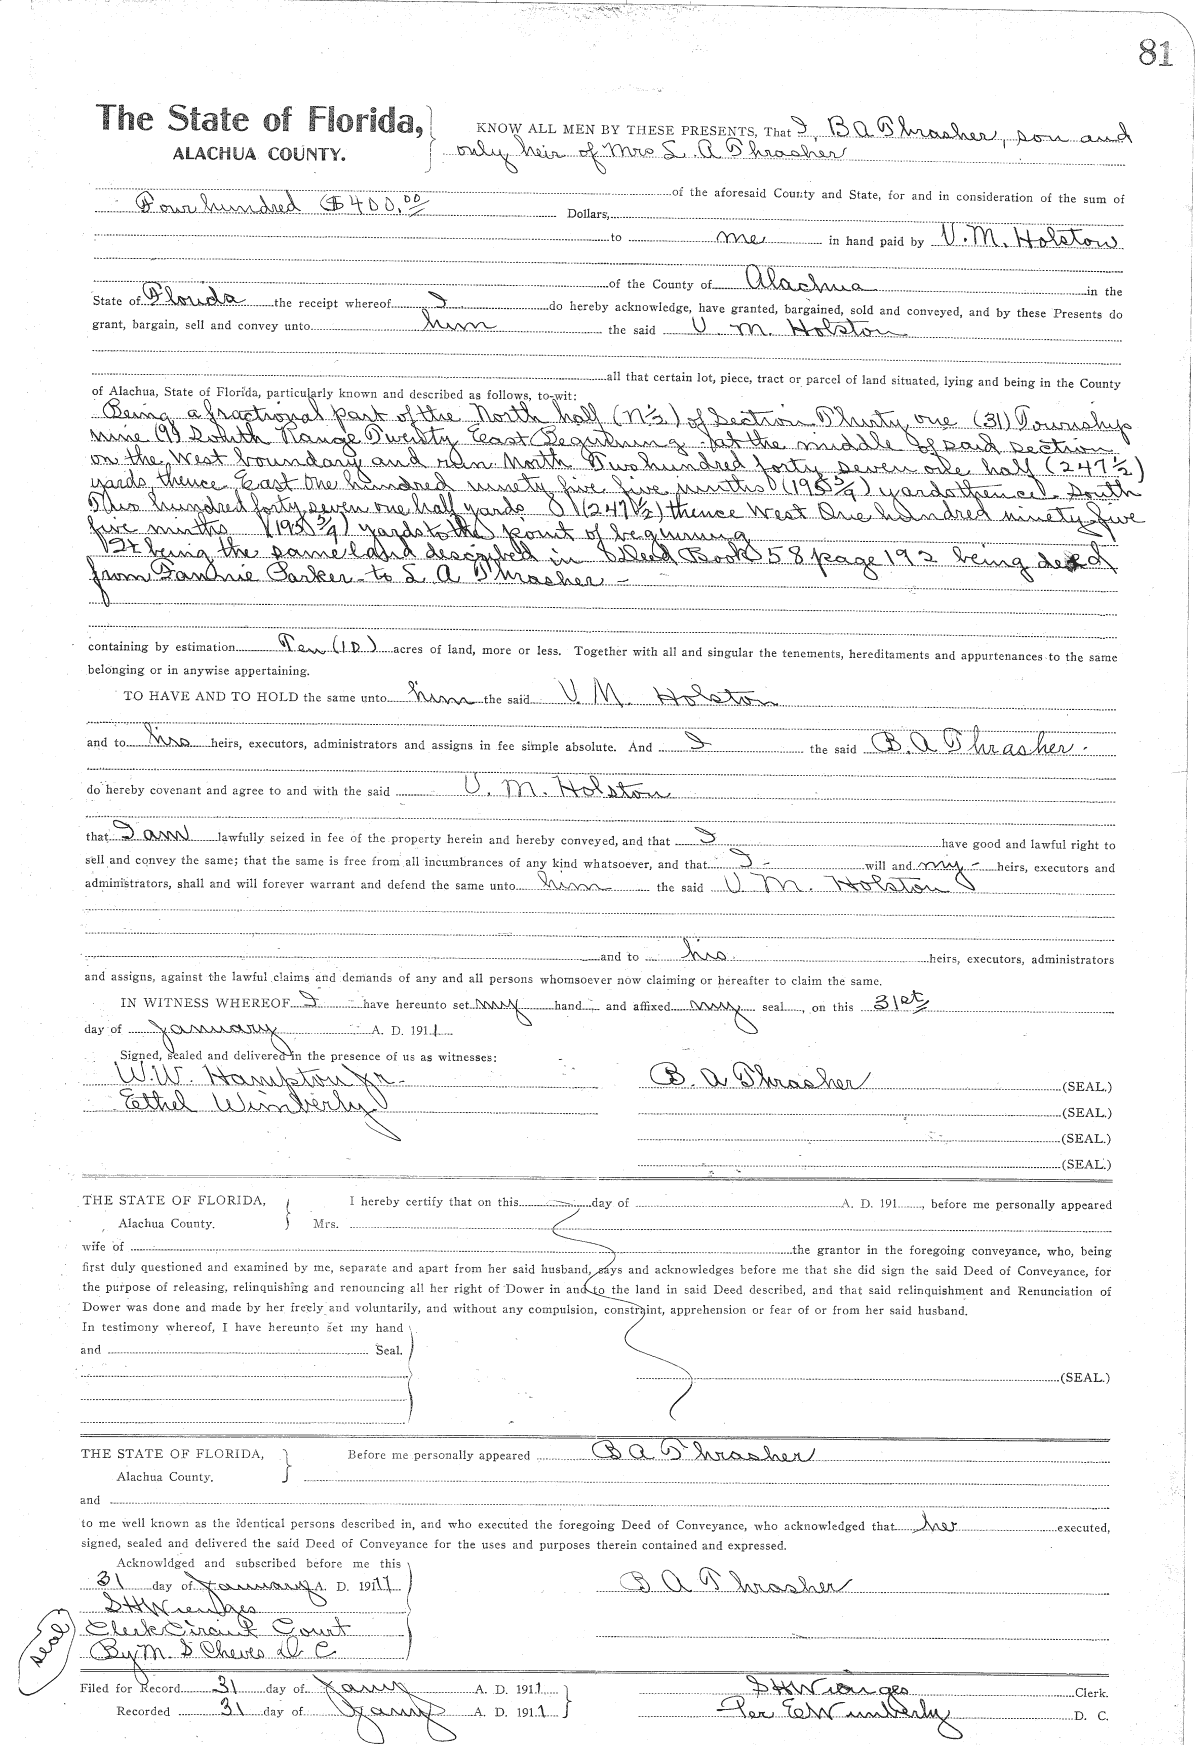 81
The State of Florida,
ALACHUA COUNTY.
KNOW ALL MEN BY THESE PRESENTS, That I, B A Thrasher, son and
only heir of Mrs L. A Thrasher
of the aforesaid County and State, for and in consideration of the sum of
Four hundred ($400.00) Dollars,
to me in hand paid by V. M. Holston
of the County of Alachua in the
State of Florida the receipt whereof I do hereby acknowledge, have granted, bargained, sold and conveyed, and by these Presents do
grant, bargain, sell and convey unto him the said V M. Holston
all that certain lot, piece, tract or parcel of land situated, lying and being in the County
of Alachua, State of Florida, particularly known and described as follows, to-wit:
Being a fractional part of the North half (N½) of Section Thirty one (31) Township
nine (9) South Range Twenty East Beginning at the middle of said section
on the West boundary and run North Two hundred forty seven one half (247½)
yards thence East One hundred ninety five five ninths (195 5/9) yards thence South
Two hundred forty seven one half yards (247½) thence West One hundred ninety five
five ninths (195 5/9) yards to the point of beginning
It being the same land described in Deed Book 58 page 192 being deed
from Fannie Parker to L A Thrasher -
containing by estimation Ten (10) acres of land, more or less. Together with all and singular the tenements, hereditaments and appurtenances to the same
belonging or in anywise appertaining.
TO HAVE AND TO HOLD the same unto him the said V. M. Holston
and to his heirs, executors, administrators and assigns in fee simple absolute. And I the said B. A Thrasher.
do hereby covenant and agree to and with the said V. M. Holston
that I am lawfully seized in fee of the property herein and hereby conveyed, and that I have good and lawful right to
sell and convey the same; that the same is free from all incumbrances of any kind whatsoever, and that I - will and my - heirs, executors and
administrators, shall and will forever warrant and defend the same unto him the said V M. Holston
and to his heirs, executors, administrators
and assigns, against the lawful claims and demands of any and all persons whomsoever now claiming or hereafter to claim the same.
IN WITNESS WHEREOF I have hereunto set my hand and affixed my seal , on this 31st
day of January A. D. 1911
Signed, sealed and delivered in the presence of us as witnesses:
W. W. Hampton Jr.
Ethel Wimberly
B. A Thrasher (SEAL.)
(SEAL.)
(SEAL.)
(SEAL.)
THE STATE OF FLORIDA,
Alachua County.
I hereby certify that on this day of A. D. 191 , before me personally appeared
Mrs.
wife of the grantor in the foregoing conveyance, who, being
first duly questioned and examined by me, separate and apart from her said husband, says and acknowledges before me that she did sign the said Deed of Conveyance, for
the purpose of releasing, relinquishing and renouncing all her right of Dower in and to the land in said Deed described, and that said relinquishment and Renunciation of
Dower was done and made by her freely and voluntarily, and without any compulsion, constraint, apprehension or fear of or from her said husband.
In testimony whereof, I have hereunto set my hand
and Seal.
(SEAL.)
THE STATE OF FLORIDA,
Alachua County.
Before me personally appeared B A Thrasher
and
to me well known as the identical persons described in, and who executed the foregoing Deed of Conveyance, who acknowledged that her executed,
signed, sealed and delivered the said Deed of Conveyance for the uses and purposes therein contained and expressed.
Acknowldged and subscribed before me this
31 day of January A. D. 1911
S H Wienges
Clerk Circuit Court
By M. S Cheves D. C
seal
B A Thrasher
Filed for Record 31 day of Jany A. D. 1911
Recorded 31 day of Jany A. D. 1911
S H Wienges Clerk.
Per E Wimberly D. C.